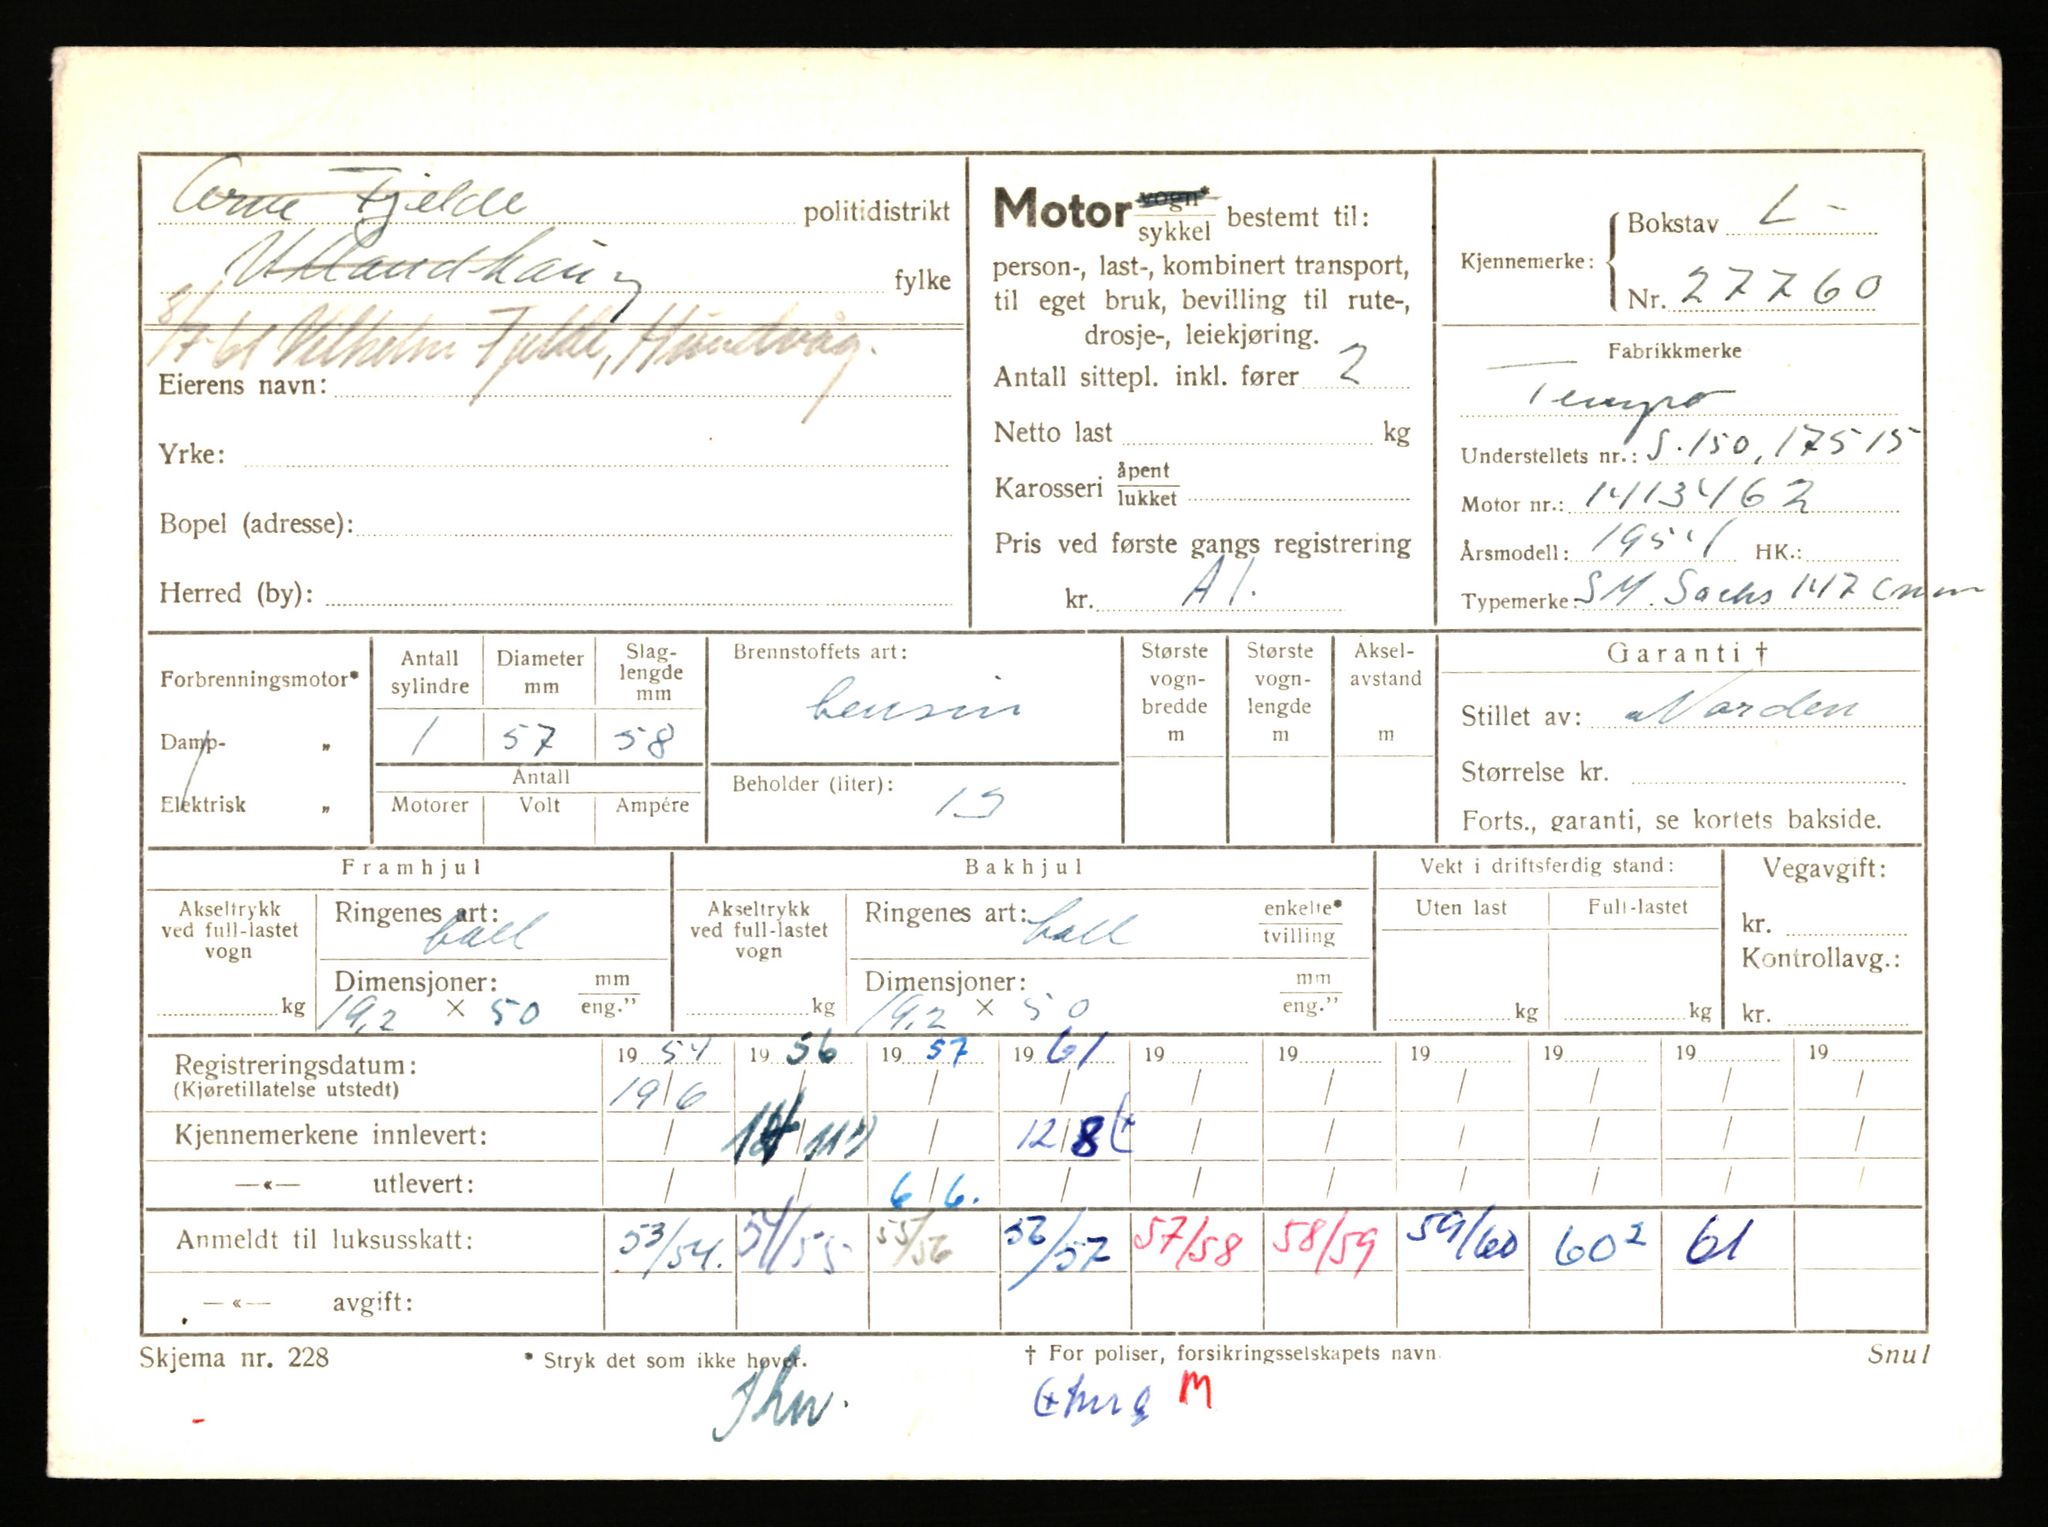 Arne Fjelde politidistrikt
Ullandhaug fylke
8/7-61 Vilhelm Fjelde, Hundvåg.
Eierens navn:
Yrke:
Bopel (adresse):
Herred (by):
Motor vogn* / sykkel bestemt til:
person-, last-, kombinert transport,
til eget bruk, bevilling til rute-,
drosje-, leiekjøring.
Antall sittepl. inkl. fører 2
Netto last kg
Karosseri åpent / lukket
Pris ved første gangs registrering
kr. A1.
Kjennemerke: Bokstav L-
Nr. 27760
Fabrikkmerke
Tempo
Understellets nr.: S.150, 17515
Motor nr.: 1413462
Årsmodell: 1954 HK.:
Typemerke: SM. Sachs 147 cmm
Forbrenningsmotor*
Damp- „
Elektrisk „
Antall sylindre Diameter mm Slag-lengde mm
1 57 58
Antall
Motorer Volt Ampére
Brennstoffets art:
bensin
Beholder (liter):
15
Største vogn-bredde m
Største vogn-lengde m
Aksel-avstand m
Garanti †
Stillet av: Norden
Størrelse kr.
Forts., garanti, se kortets bakside.
Framhjul
Akseltrykk ved full-lastet vogn
kg
Ringenes art: ball
Dimensjoner: mm / eng."
19,2 × 50
Bakhjul
Akseltrykk ved full-lastet vogn
kg
Ringenes art: ball enkelte* / tvilling
Dimensjoner: mm / eng."
19,2 × 50
Vekt i driftsferdig stand:
Uten last Full-lastet
kg kg
Vegavgift:
kr.
Kontrollavg.:
kr.
Registreringsdatum: 19 54 19 56 19 57 19 61 19 19 19 19 19 19
(Kjøretillatelse utstedt) 19/6 / / / / / / / / /
Kjennemerkene innlevert: / / / 12/8 / / / / / /
—«— utlevert: / / 6/6. / / / / / / /
Anmeldt til luksusskatt: 53/54. 54/55 55/56 56/57 57/58 58/59 59/60 60² 61
—«— avgift:
Skjema nr. 228
* Stryk det som ikke høver.
† For poliser, forsikringsselskapets navn
Snul
M